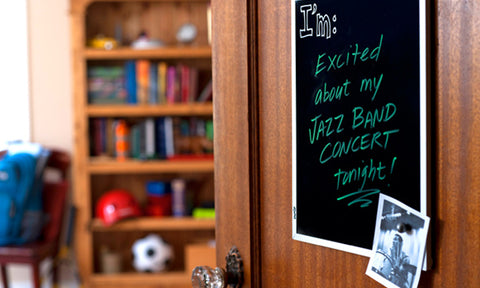 I'm:
Excited
about my
JAZZ BAND
CONCERT
tonight!